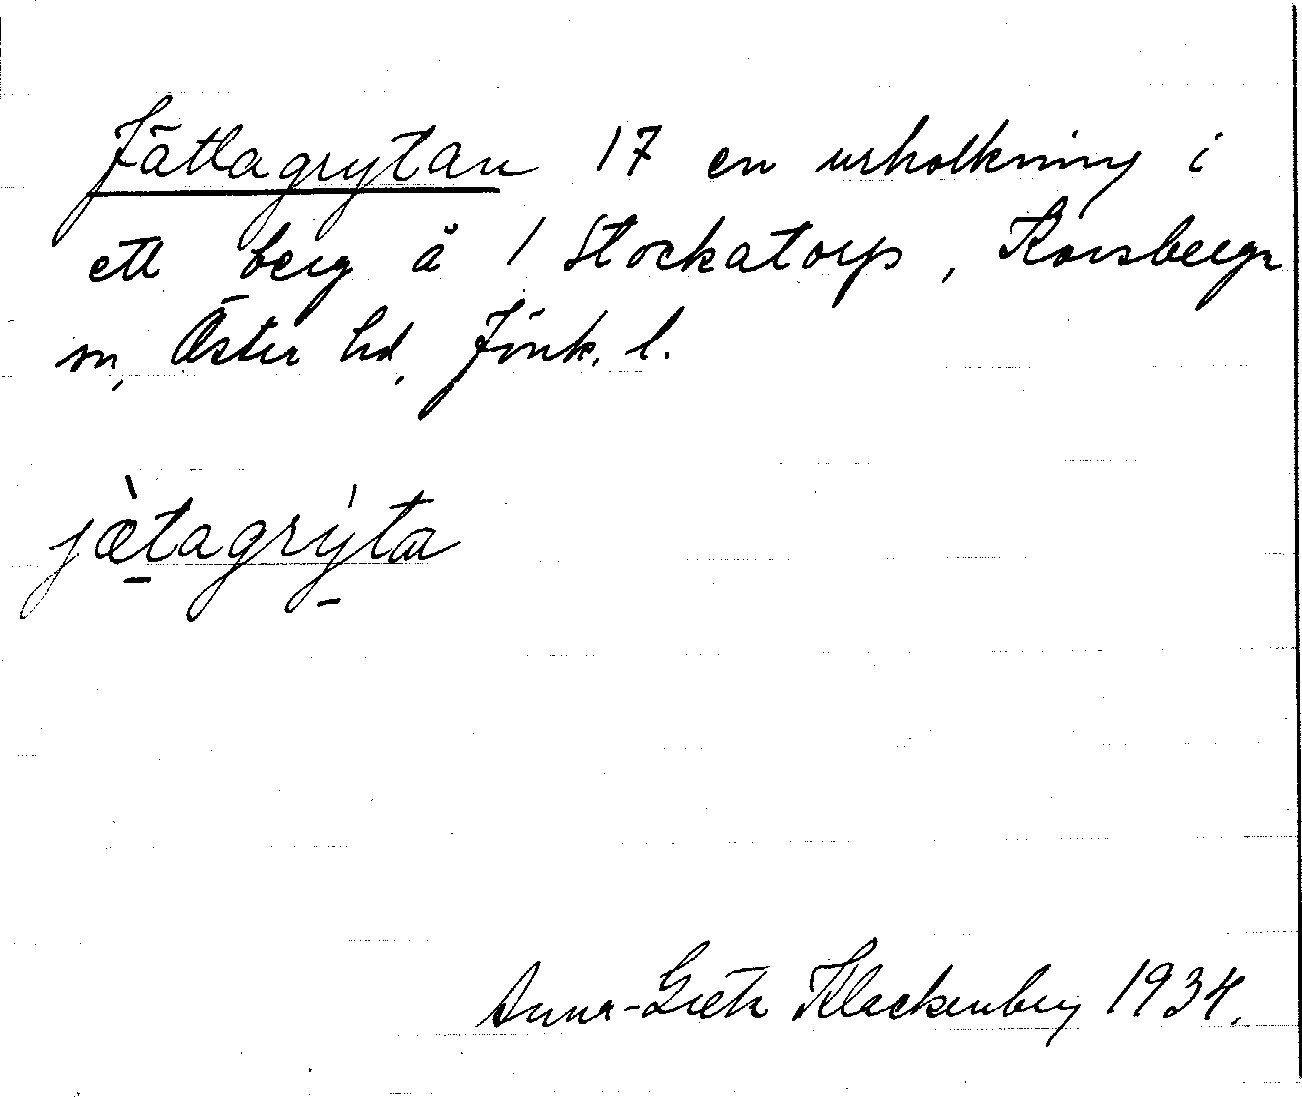 Jättagrytan 17 en urholkning i
ett berg å 1 Stockatorp, Korsberga
sn, Öster hd, Jönk. l.
jæ̀tagrýta
Anna-Greta Klackenberg 1934.